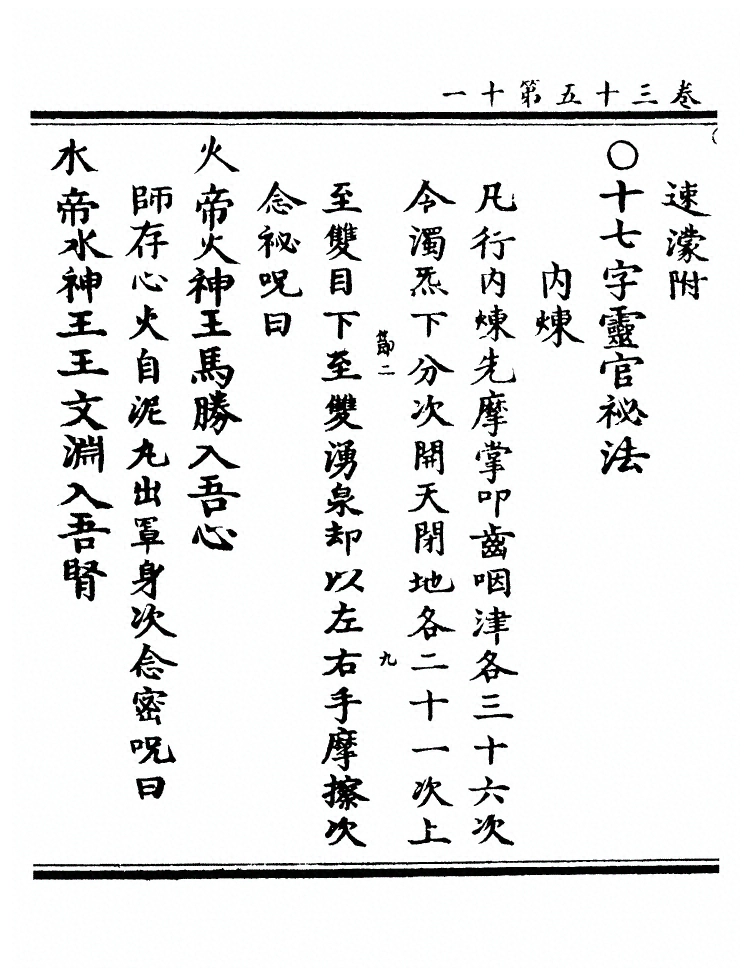 卷三十五第十一
速濛附
○十七字靈官祕法
內煉
凡行內煉先摩掌叩齒咽津各三十六次
令濁炁下分次開天閉地各二十一次上
節二
九
至雙目下至雙湧泉却以左右手摩擦次
念祕呪曰
火帝火神王馬勝入吾心
師存心火自泥丸出罩身次念密呪曰
水帝水神王王文淵入吾腎